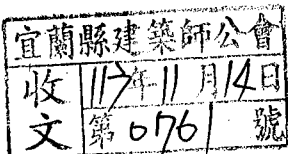 宜蘭縣建築師公會
收文
117年11月14日
第0761號